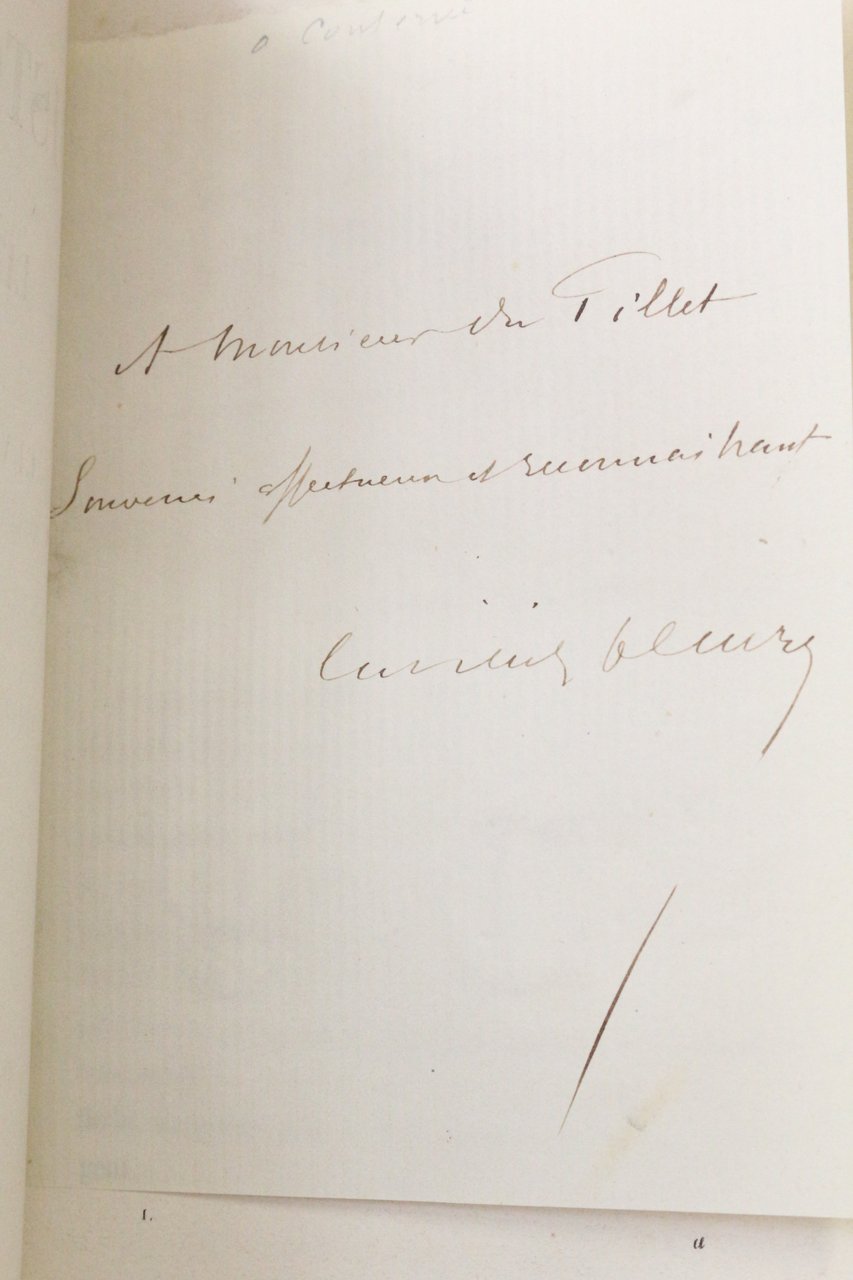 A Monsieur du Tillet
Souvenir affectueux et reconnaissant
Cuvillier Fleury
1.
a